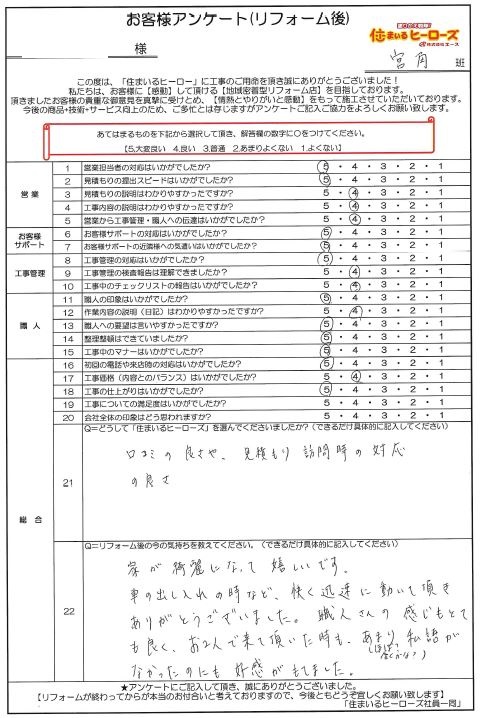 お客様アンケート(リフォーム後)
住まいるヒーローズ
株式会社エース
様
宮角 班
この度は、「住まいるヒーロー」に工事のご用命を頂き誠にありがとうございました!
私たちは、お客様に【感動】して頂ける【地域密着型リフォーム店】を目指しております。
頂きましたお客様の貴重な御意見を真摯に受けとめ、【情熱とやりがいと感動】をもって施工させていただいております。
今後の商品+技術+サービス向上のため、ご多忙とは存じますがアンケートご記入ご協力をよろしくお願い致します。
あてはまるものを下記から選択して頂き、解答欄の数字に○をつけてください。
【5.大変良い 4.良い 3.普通 2.あまりよくない 1.よくない】
営業
1 営業担当者の対応はいかがでしたか? 5・4・3・2・1
2 見積もりの提出スピードはいかがでしたか? 5・4・3・2・1
3 見積もりの説明はわかりやすかったですか? 5・4・3・2・1
4 工事内容の説明はいかがでしたか? 5・4・3・2・1
5 営業から工事管理・職人への伝達はいかがでしたか? 5・4・3・2・1
お客様サポート
6 お客様サポートの対応はいかがでしたか? 5・4・3・2・1
7 お客様サポートの近隣様への気遣いはいかがでしたか? 5・4・3・2・1
工事管理
8 工事管理の対応はいかがでしたか? 5・4・3・2・1
9 工事管理の検査報告は理解できましたか? 5・4・3・2・1
10 工事中のチェックリストの報告はいかがでしたか? 5・4・3・2・1
職人
11 職人の印象はいかがでしたか? 5・4・3・2・1
12 作業内容の説明(日記)はわかりやすかったですか? 5・4・3・2・1
13 職人への要望は言いやすかったですか? 5・4・3・2・1
14 整理整頓はできていましたか? 5・4・3・2・1
15 工事中のマナーはいかがでしたか? 5・4・3・2・1
総合
16 初回の電話や来店時の対応はいかがでしたか? 5・4・3・2・1
17 工事価格(内容とのバランス)はいかがでしたか? 5・4・3・2・1
18 工事の仕上がりはいかがでしたか? 5・4・3・2・1
19 工事についての満足度はいかがでしたか? 5・4・3・2・1
20 会社全体の印象はどう思われますか? 5・4・3・2・1
21
Q=どうして「住まいるヒーローズ」を選んでくださいましたか?(できるだけ具体的に記入してください)
口コミの良さや、見積もり訪問時の対応
の良さ
22
Q=リフォーム後の今の気持ちを教えてください。(できるだけ具体的に記入してください)
家が綺麗になって嬉しいです。
車の出し入れの時など、快く迅速に動いて頂き
ありがとうございました。職人さんの感じもとて
も良く、お2人で来て頂いた時も、あまり私語が
(ほぼ?全くかな?)
なかったのにも好感がもてました。
★アンケートにご記入して頂き、誠にありがとうございました。
【リフォームが終わってからが本当のお付合いと考えておりますので、今後ともどうぞ宜しくお願い致します】
「住まいるヒーローズ社員一同」